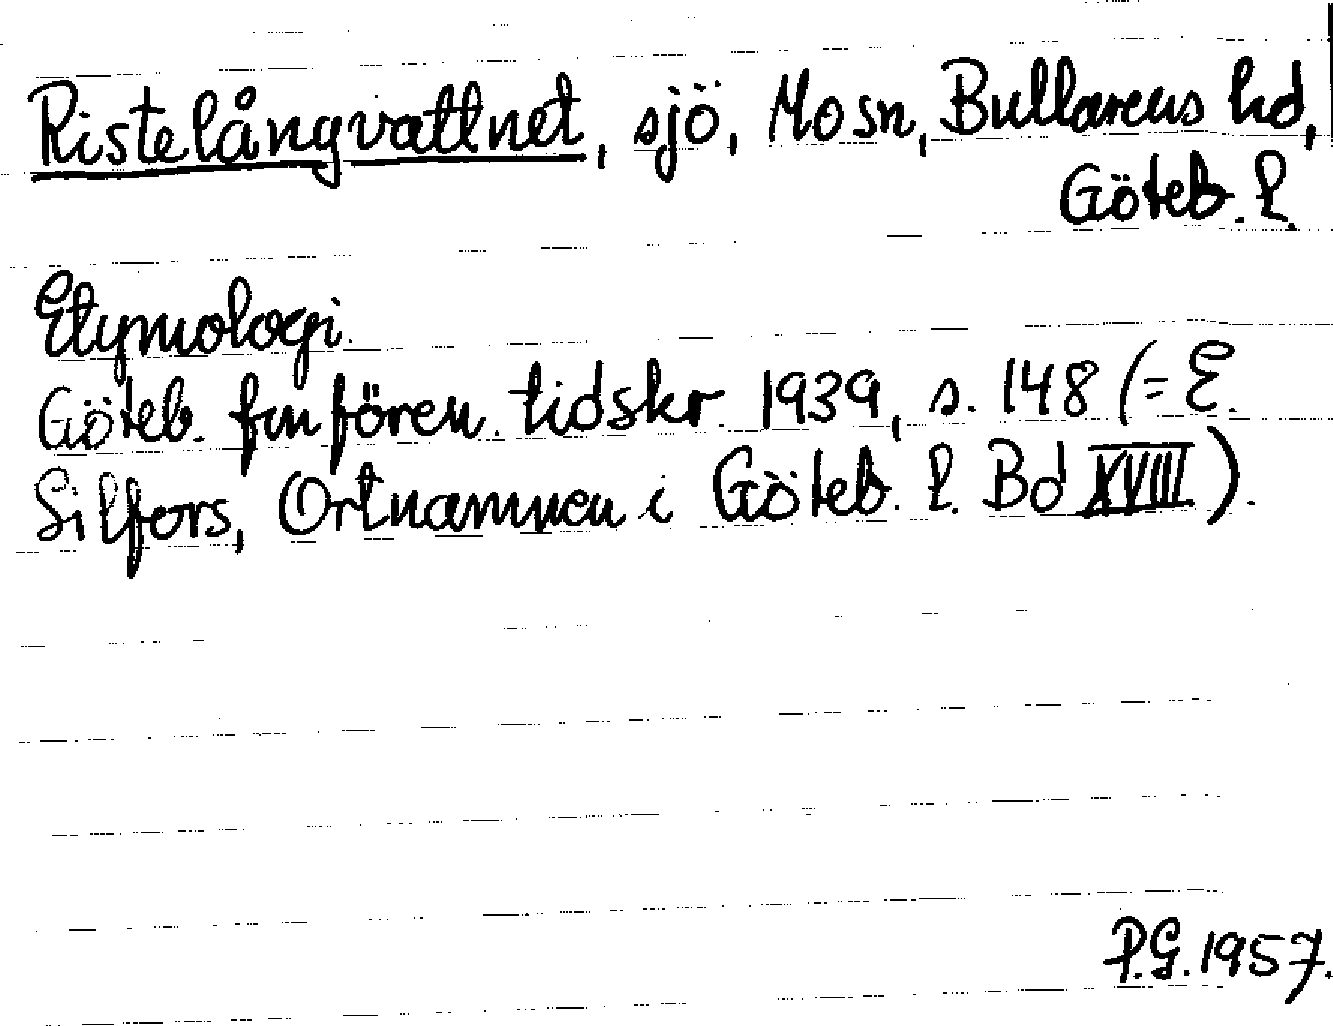 Ristelångvattnet, sjö, Mo sn, Bullarens hd,
Göteb. l.
Etymologi.
Göteb. fmfören. tidskr. 1939, s. 148 (= E.
Silfors, Ortnamnen i Göteb. l. Bd XVIII).
P.G. 1957.